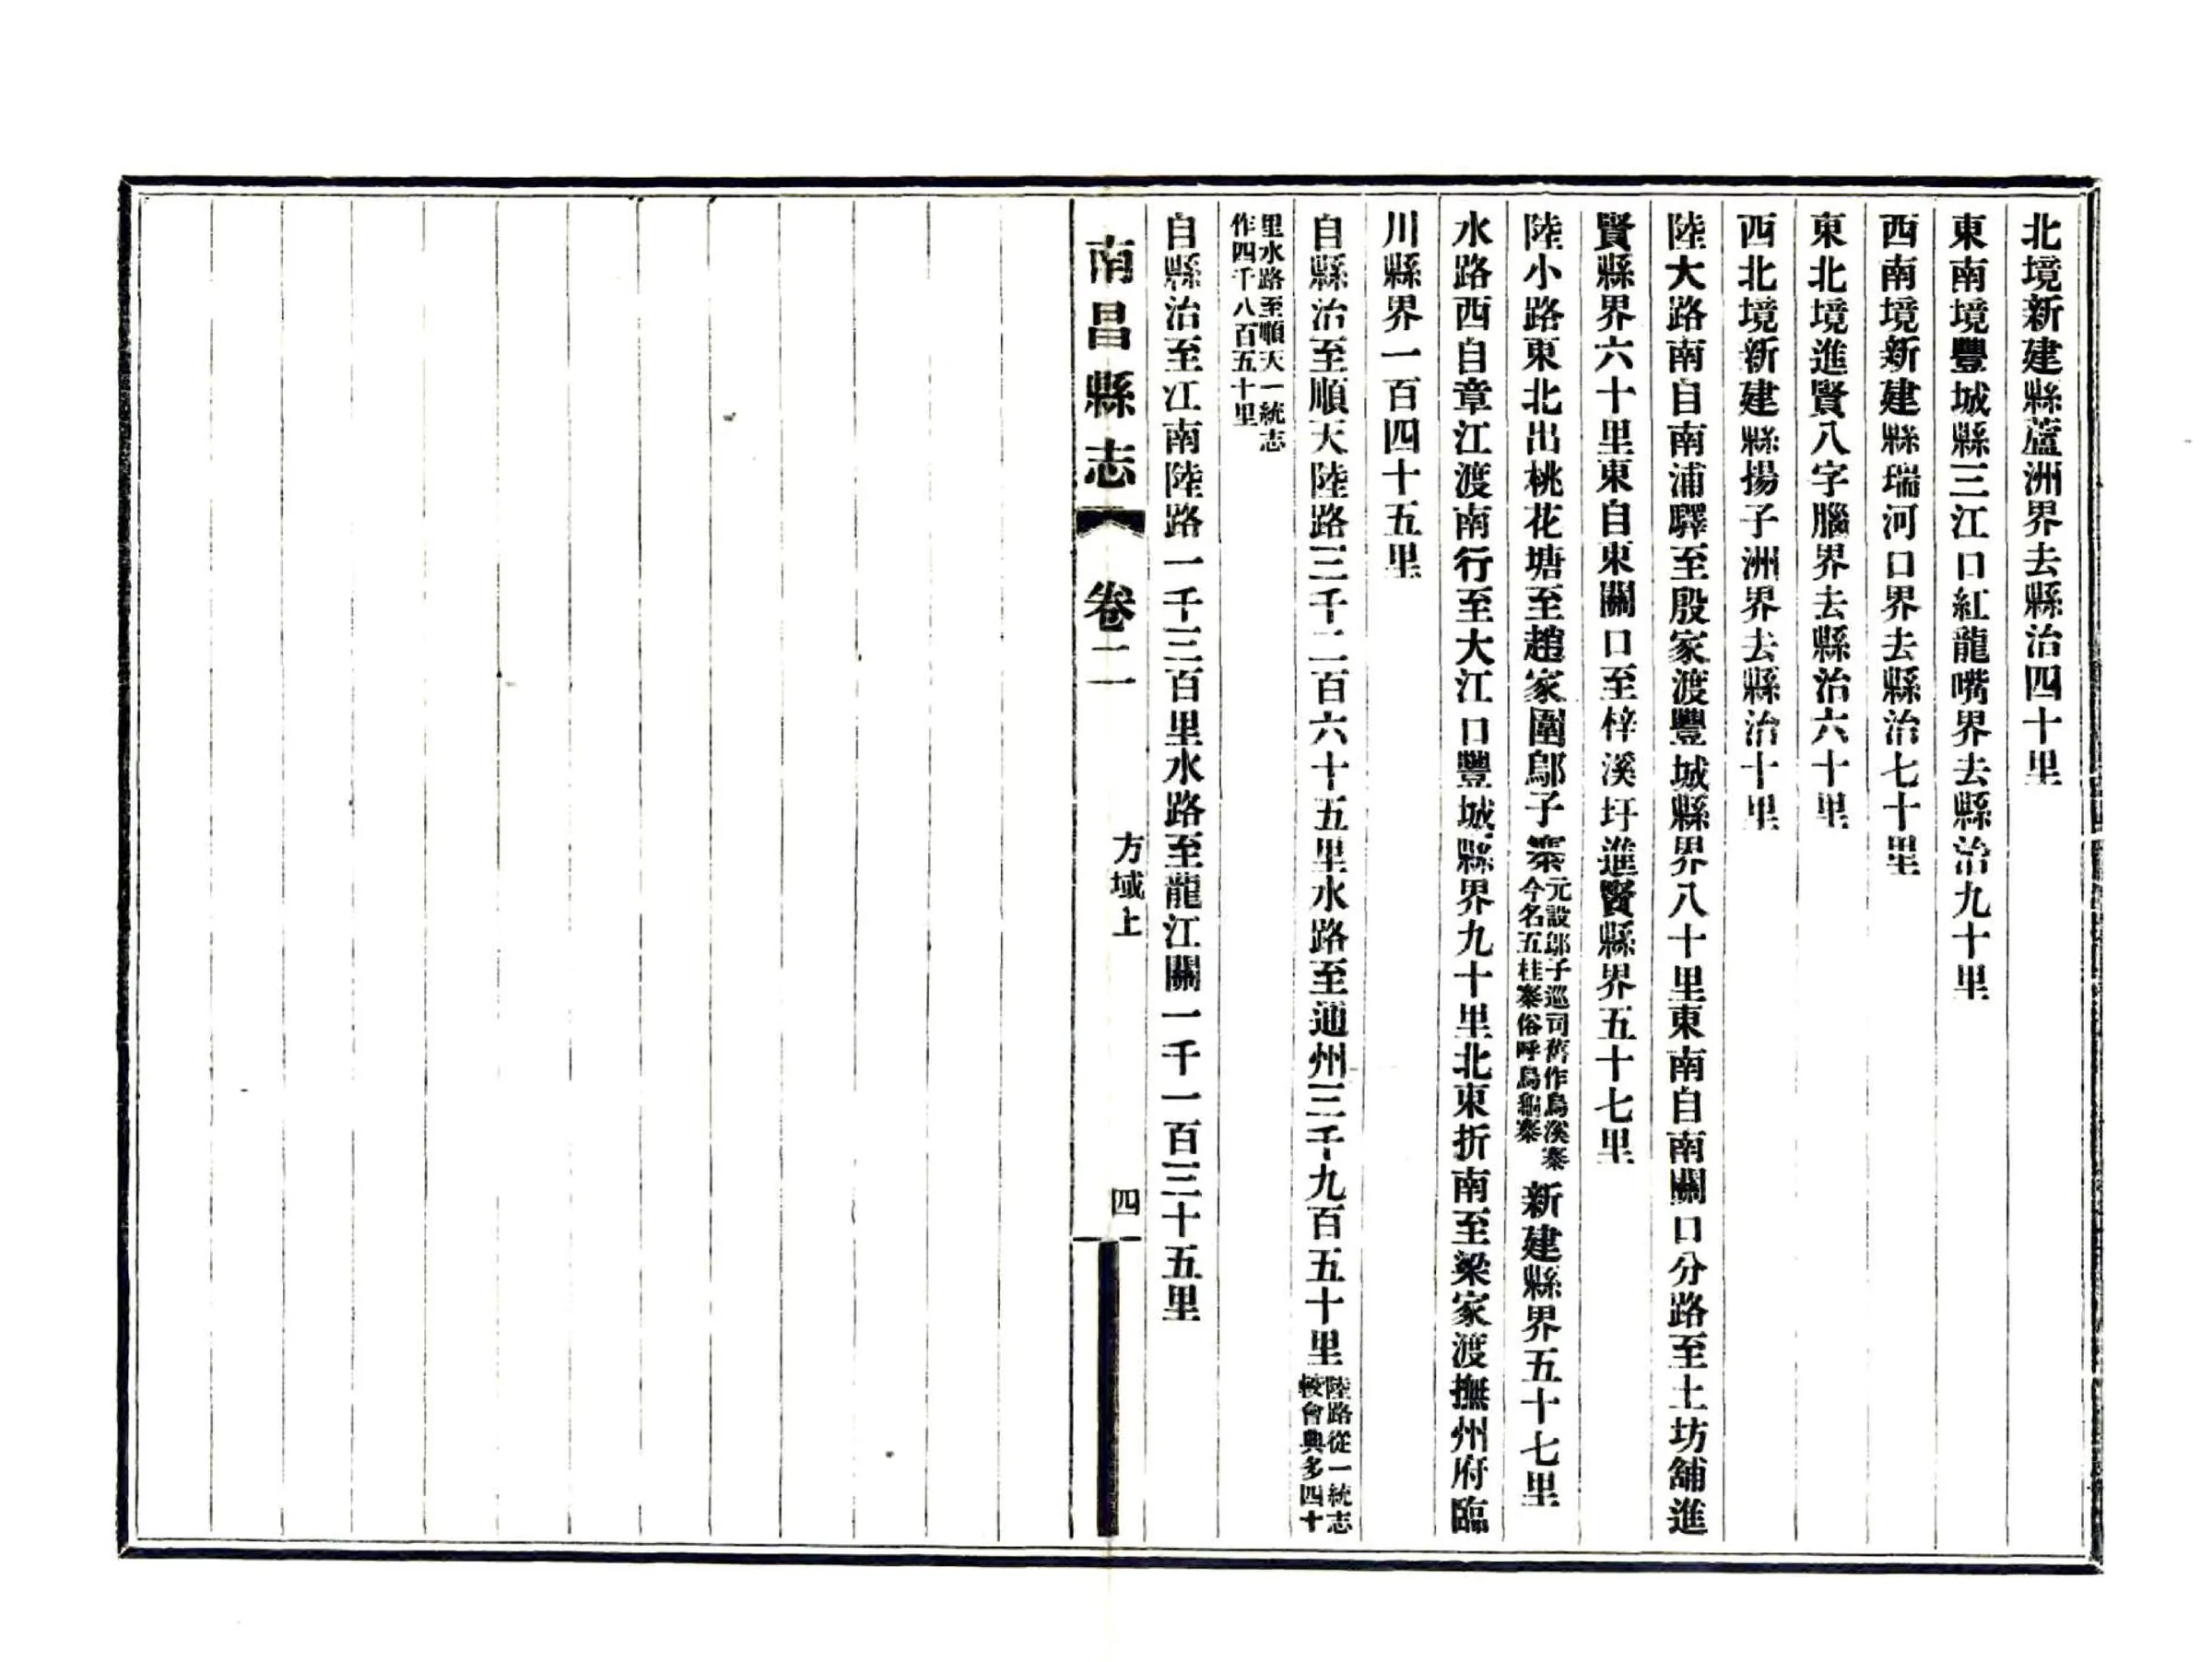 北境新建縣蘆洲界去縣治四十里
東南境豐城縣三江口紅龍嘴界去縣治九十里
西南境新建縣瑞河口界去縣治七十里
東北境進賢八字腦界去縣治六十里
西北境新建縣揚子洲界去縣治十里
陸大路南自南浦驛至殷家渡豐城縣界八十里東南自南關口分路至土坊舖進
賢縣界六十里東自東關口至梓溪圩進賢縣界五十七里
陸小路東北出桃花塘至趙家圍鄔子寨元設鄔子巡司舊作烏溪寨今名五桂寨俗呼烏龜寨新建縣界五十七里
水路西自章江渡南行至大江口豐城縣界九十里北東折南至梁家渡撫州府臨
川縣界一百四十五里
自縣治至順天陸路三千二百六十五里水路至通州三千九百五十里陸路從一統志較會典多四十
里水路至順天一統志作四千八百五十里
自縣治至江南陸路一千三百里水路至龍江關一千一百三十五里
南昌縣志 卷二 方域上 四